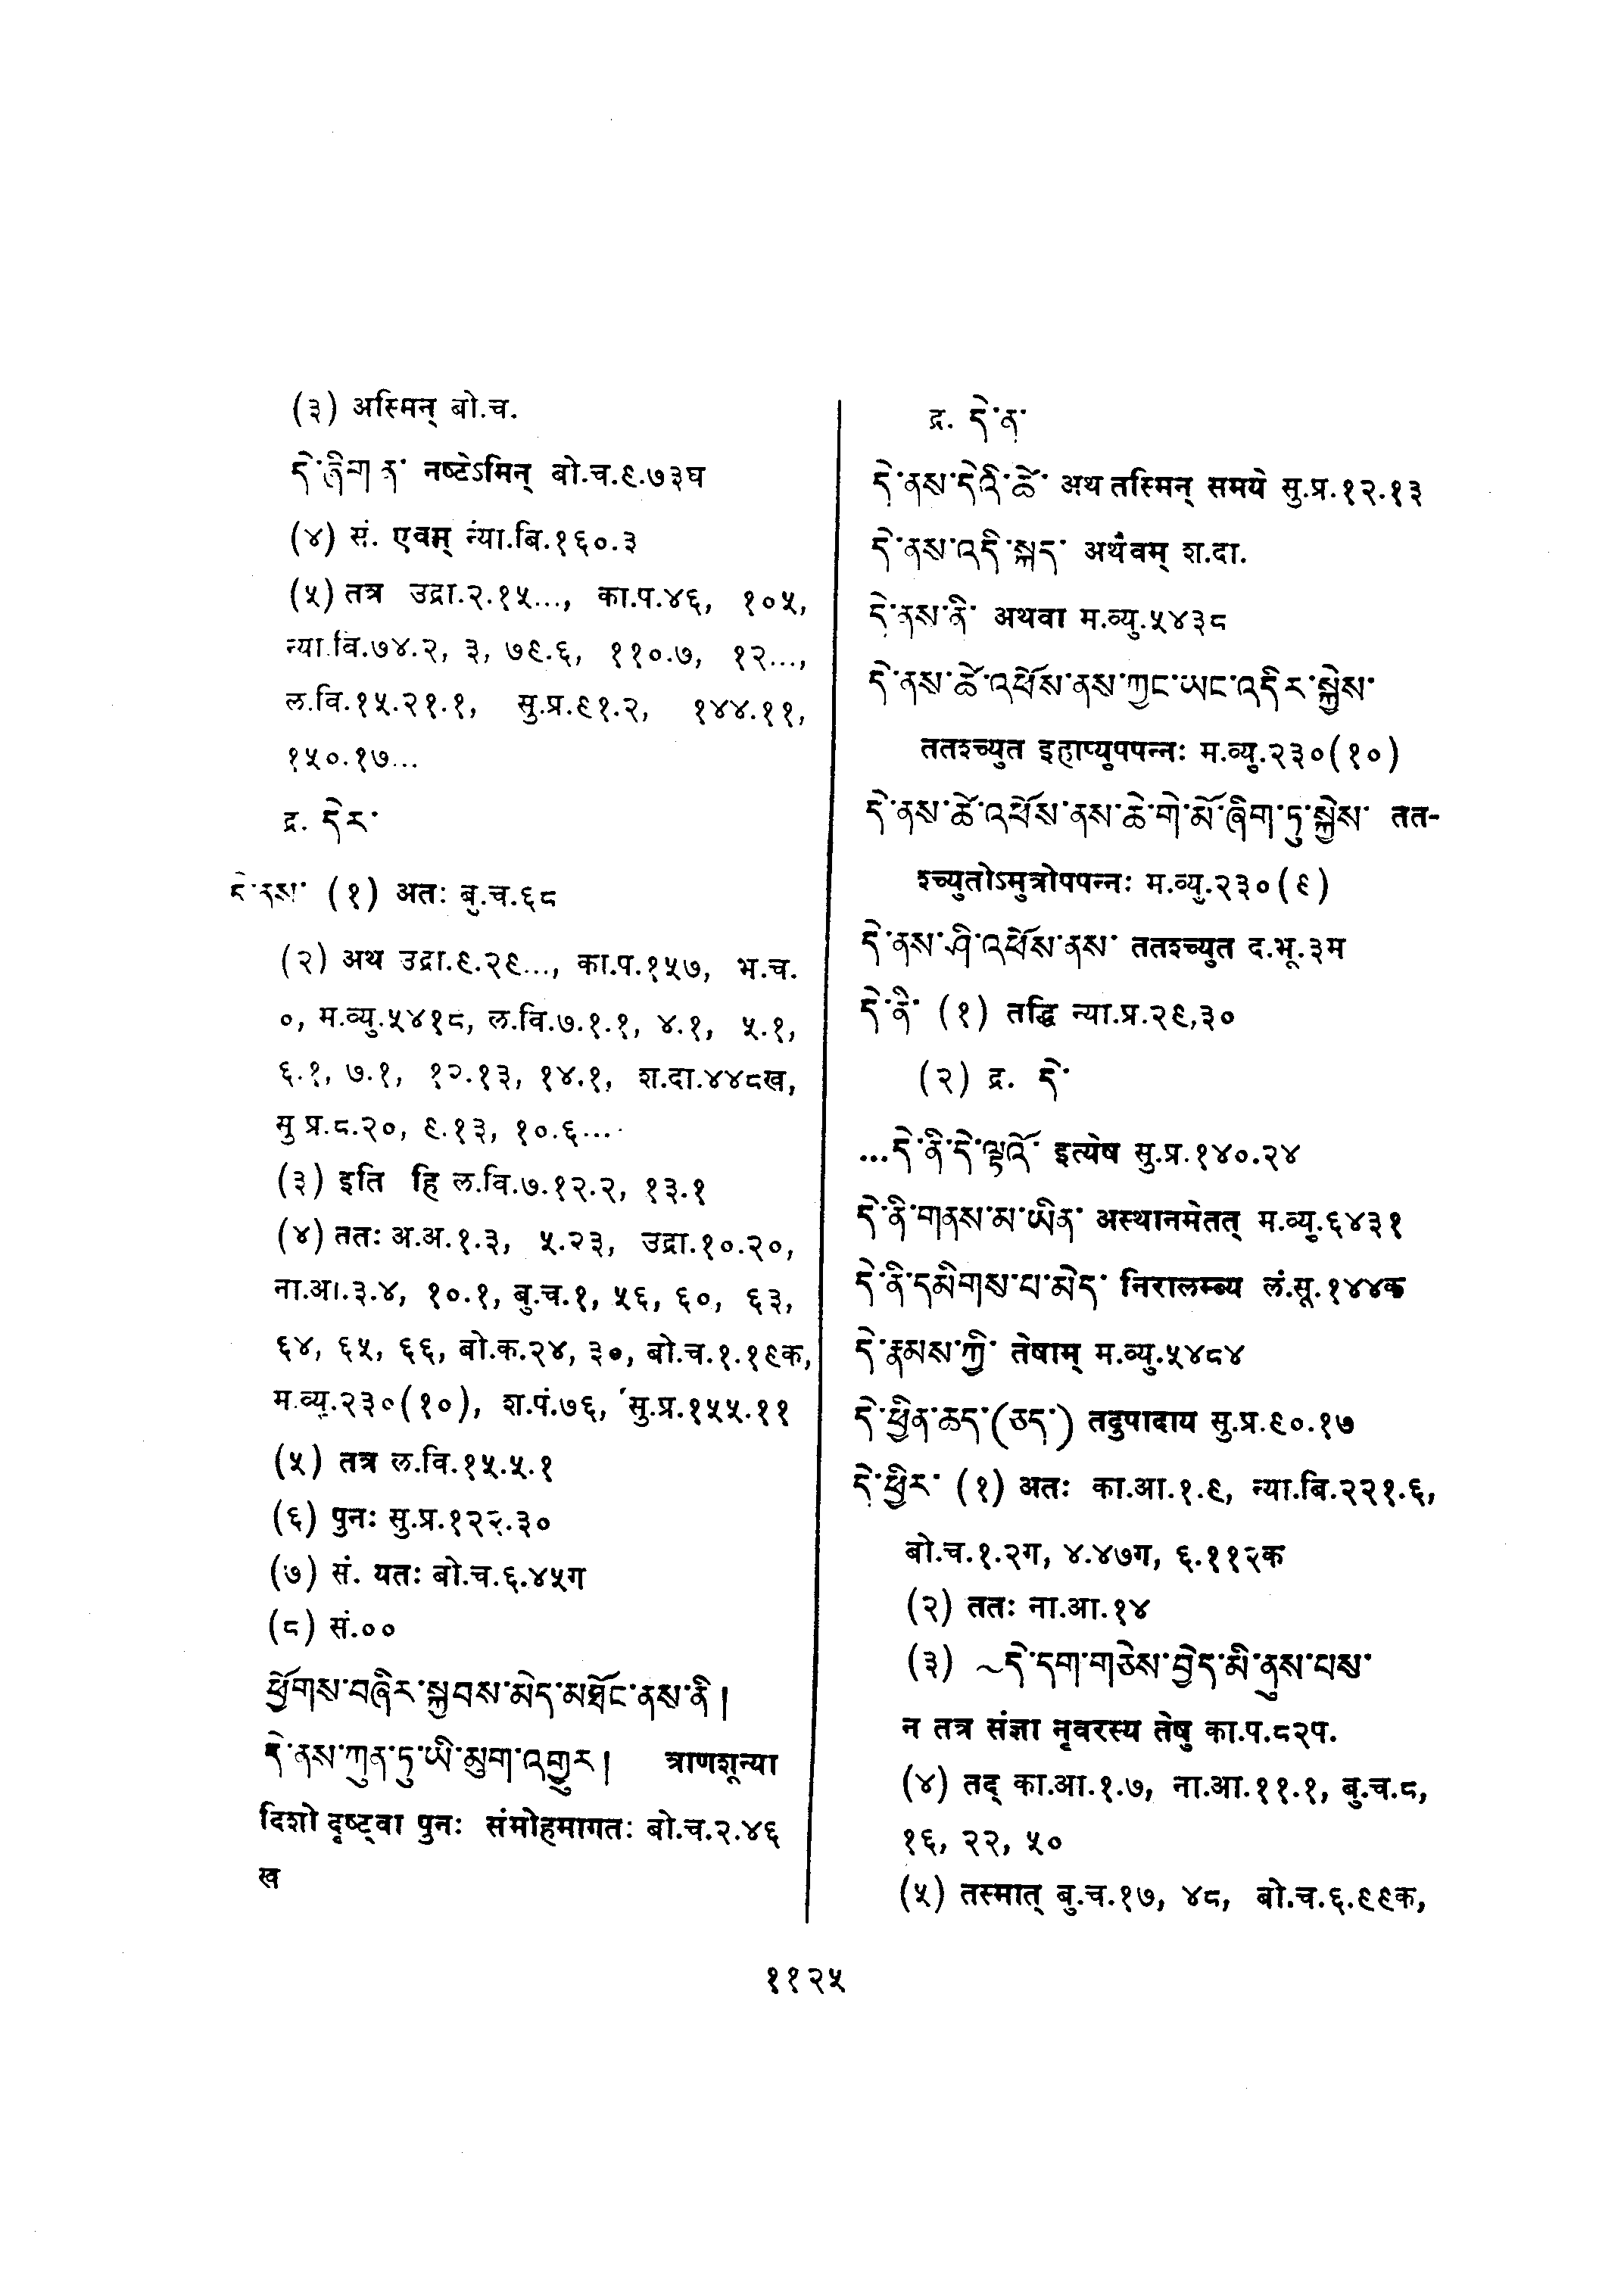 (३) अस्मिन् बो.च.
དེ་ཞིག ན་ नष्टेऽमिन् बो.च.९.७३घ
(४) सं. एवम् न्या.बि.१६०.३
(५) तत्र उद्रा.२.१५..., का.प.४६, १०५,
न्या.वि.७४.२, ३, ७९.६, ११०.७, १२...,
ल.वि.१५.२१.१, सु.प्र.९१.२, १४४.११,
१५०.१७...
द्र. དེར་
དེ་ནས་ (१) अतः बु.च.६८
(२) अथ उद्रा.९.२९..., का.प.१५७, भ.च.
०, म.व्यु.५४१८, ल.वि.७.१.१, ४.१, ५.१,
६.१, ७.१, १२.१३, १४.१, श.दा.४४८ख,
सु प्र.८.२०, ९.१३, १०.६....
(३) इति हि ल.वि.७.१२.२, १३.१
(४) ततः अ.अ.१.३, ५.२३, उद्रा.१०.२०,
ना.आ.३.४, १०.१, बु.च.१, ५६, ६०, ६३,
६४, ६५, ६६, बो.क.२४, ३०, बो.च.१.१९क,
म.व्यु.२३०(१०), श.पं.७६, सु.प्र.१५५.११
(५) तत्र ल.वि.१५.५.१
(६) पुनः सु.प्र.१२२.३०
(७) सं. यतः बो.च.६.४५ग
(८) सं.००
ཕྱོགས་བཞིར་སྐྱབས་མེད་མཐོང་ནས་ནི།
དེ་ནས་ཀུན་ཏུ་ཡི་མུག་འགྱུར། त्राणशून्या
दिशो दृष्ट्वा पुनः संमोहमागतः बो.च.२.४६
ख
द्र. དེ་ན་
དེ་ནས་དེའི་ཚེ་ अथ तस्मिन् समये सु.प्र.१२.१३
དེ་ནས་འདི་སྐད་ अथैवम् श.दा.
དེ་ནས་ནི་ अथवा म.व्यु.५४३८
དེ་ནས་ཚེ་འཕོས་ནས་ཀྱང་ཡང་འདིར་སྐྱེས་
ततश्च्युत इहाप्युपपन्नः म.व्यु.२३०(१०)
དེ་ནས་ཚེ་འཕོས་ནས་ཆེ་གེ་མོ་ཞིག་ཏུ་སྐྱེས་ तत-
श्च्युतोऽमुत्रोपपन्नः म.व्यु.२३०(९)
དེ་ནས་ཤི་འཕོས་ནས་ ततश्च्युत द.भू.३म
དེ་ནི་ (१) तद्धि न्या.प्र.२९,३०
(२) द्र. དེ་
...དེ་ནི་དེ་ལྟའོ་ इत्येष सु.प्र.१४०.२४
དེ་ནི་གནས་མ་ཡིན་ अस्थानमेतत् म.व्यु.६४३१
དེ་ནི་དམིགས་པ་མེད་ निरालम्ब्य लं.सू.१४४क
དེ་རྣམས་ཀྱི་ तेषाम् म.व्यु.५४८४
དེ་ཕྱིན་ཆད་(ཅད་) तदुपादाय सु.प्र.९०.१७
དེ་ཕྱིར་ (१) अतः का.आ.१.९, न्या.बि.२२१.६,
बो.च.१.२ग, ४.४७ग, ६.११२क
(२) ततः ना.आ.१४
(३) ~དེ་དག་གཅེས་བྱེད་མི་ནུས་པས་
न तत्र संज्ञा नृवरस्य तेषु का.प.८२प.
(४) तद् का.आ.१.७, ना.आ.११.१, बु.च.८,
१६, २२, ५०
(५) तस्मात् बु.च.१७, ४८, बो.च.६.९९क,
११२५